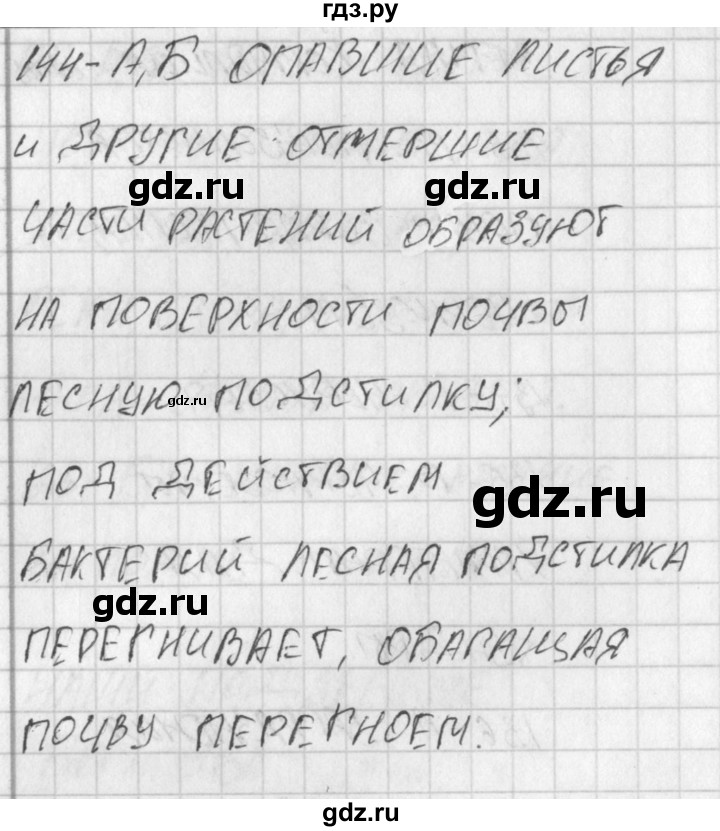 гдз.ру
144-А,Б ОПАВШИЕ ЛИСТЬЯ
И ДРУГИЕ ОТМЕРШИЕ
gdz.ru gdz.ru
ЧАСТИ РАСТЕНИЙ ОБРАЗУЮТ
НА ПОВЕРХНОСТИ ПОЧВЫ
ЛЕСНУЮ ПОДСТИЛКУ;
gdz.ru
ПОД ДЕЙСТВИЕМ
gdz.ru
БАКТЕРИЙ ЛЕСНАЯ ПОДСТИЛКА
gdz.ru
ПЕРЕГНИВАЕТ, ОБАГАЩАЯ
ПОЧВУ ПЕРЕГНОЕМ.
gdz.ru